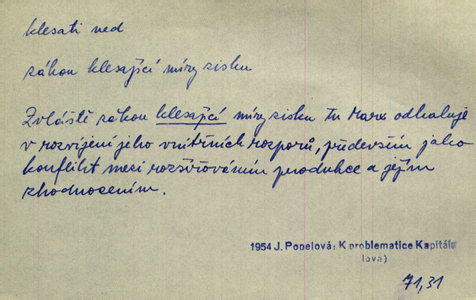 klesati ned
zákon klesající míry zisku
Zvláště zákon klesající míry zisku tu Marx odhaluje
v rozvíjení jeho vnitřních rozporů, především jako
konflikt mezi rozšiřováním produkce a jejím
zhodnocením.
1954 J. Popelová: K problematice Kapitálu
lova)
71,31